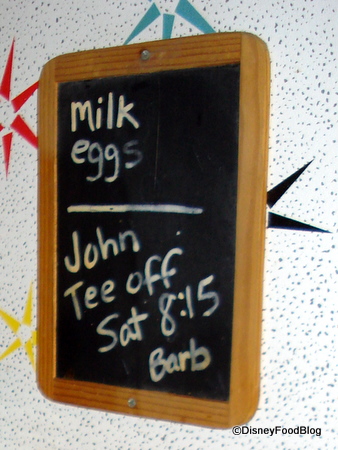 milk
eggs
John
Tee off
Sat 8:15
Barb
©DisneyFoodBlog